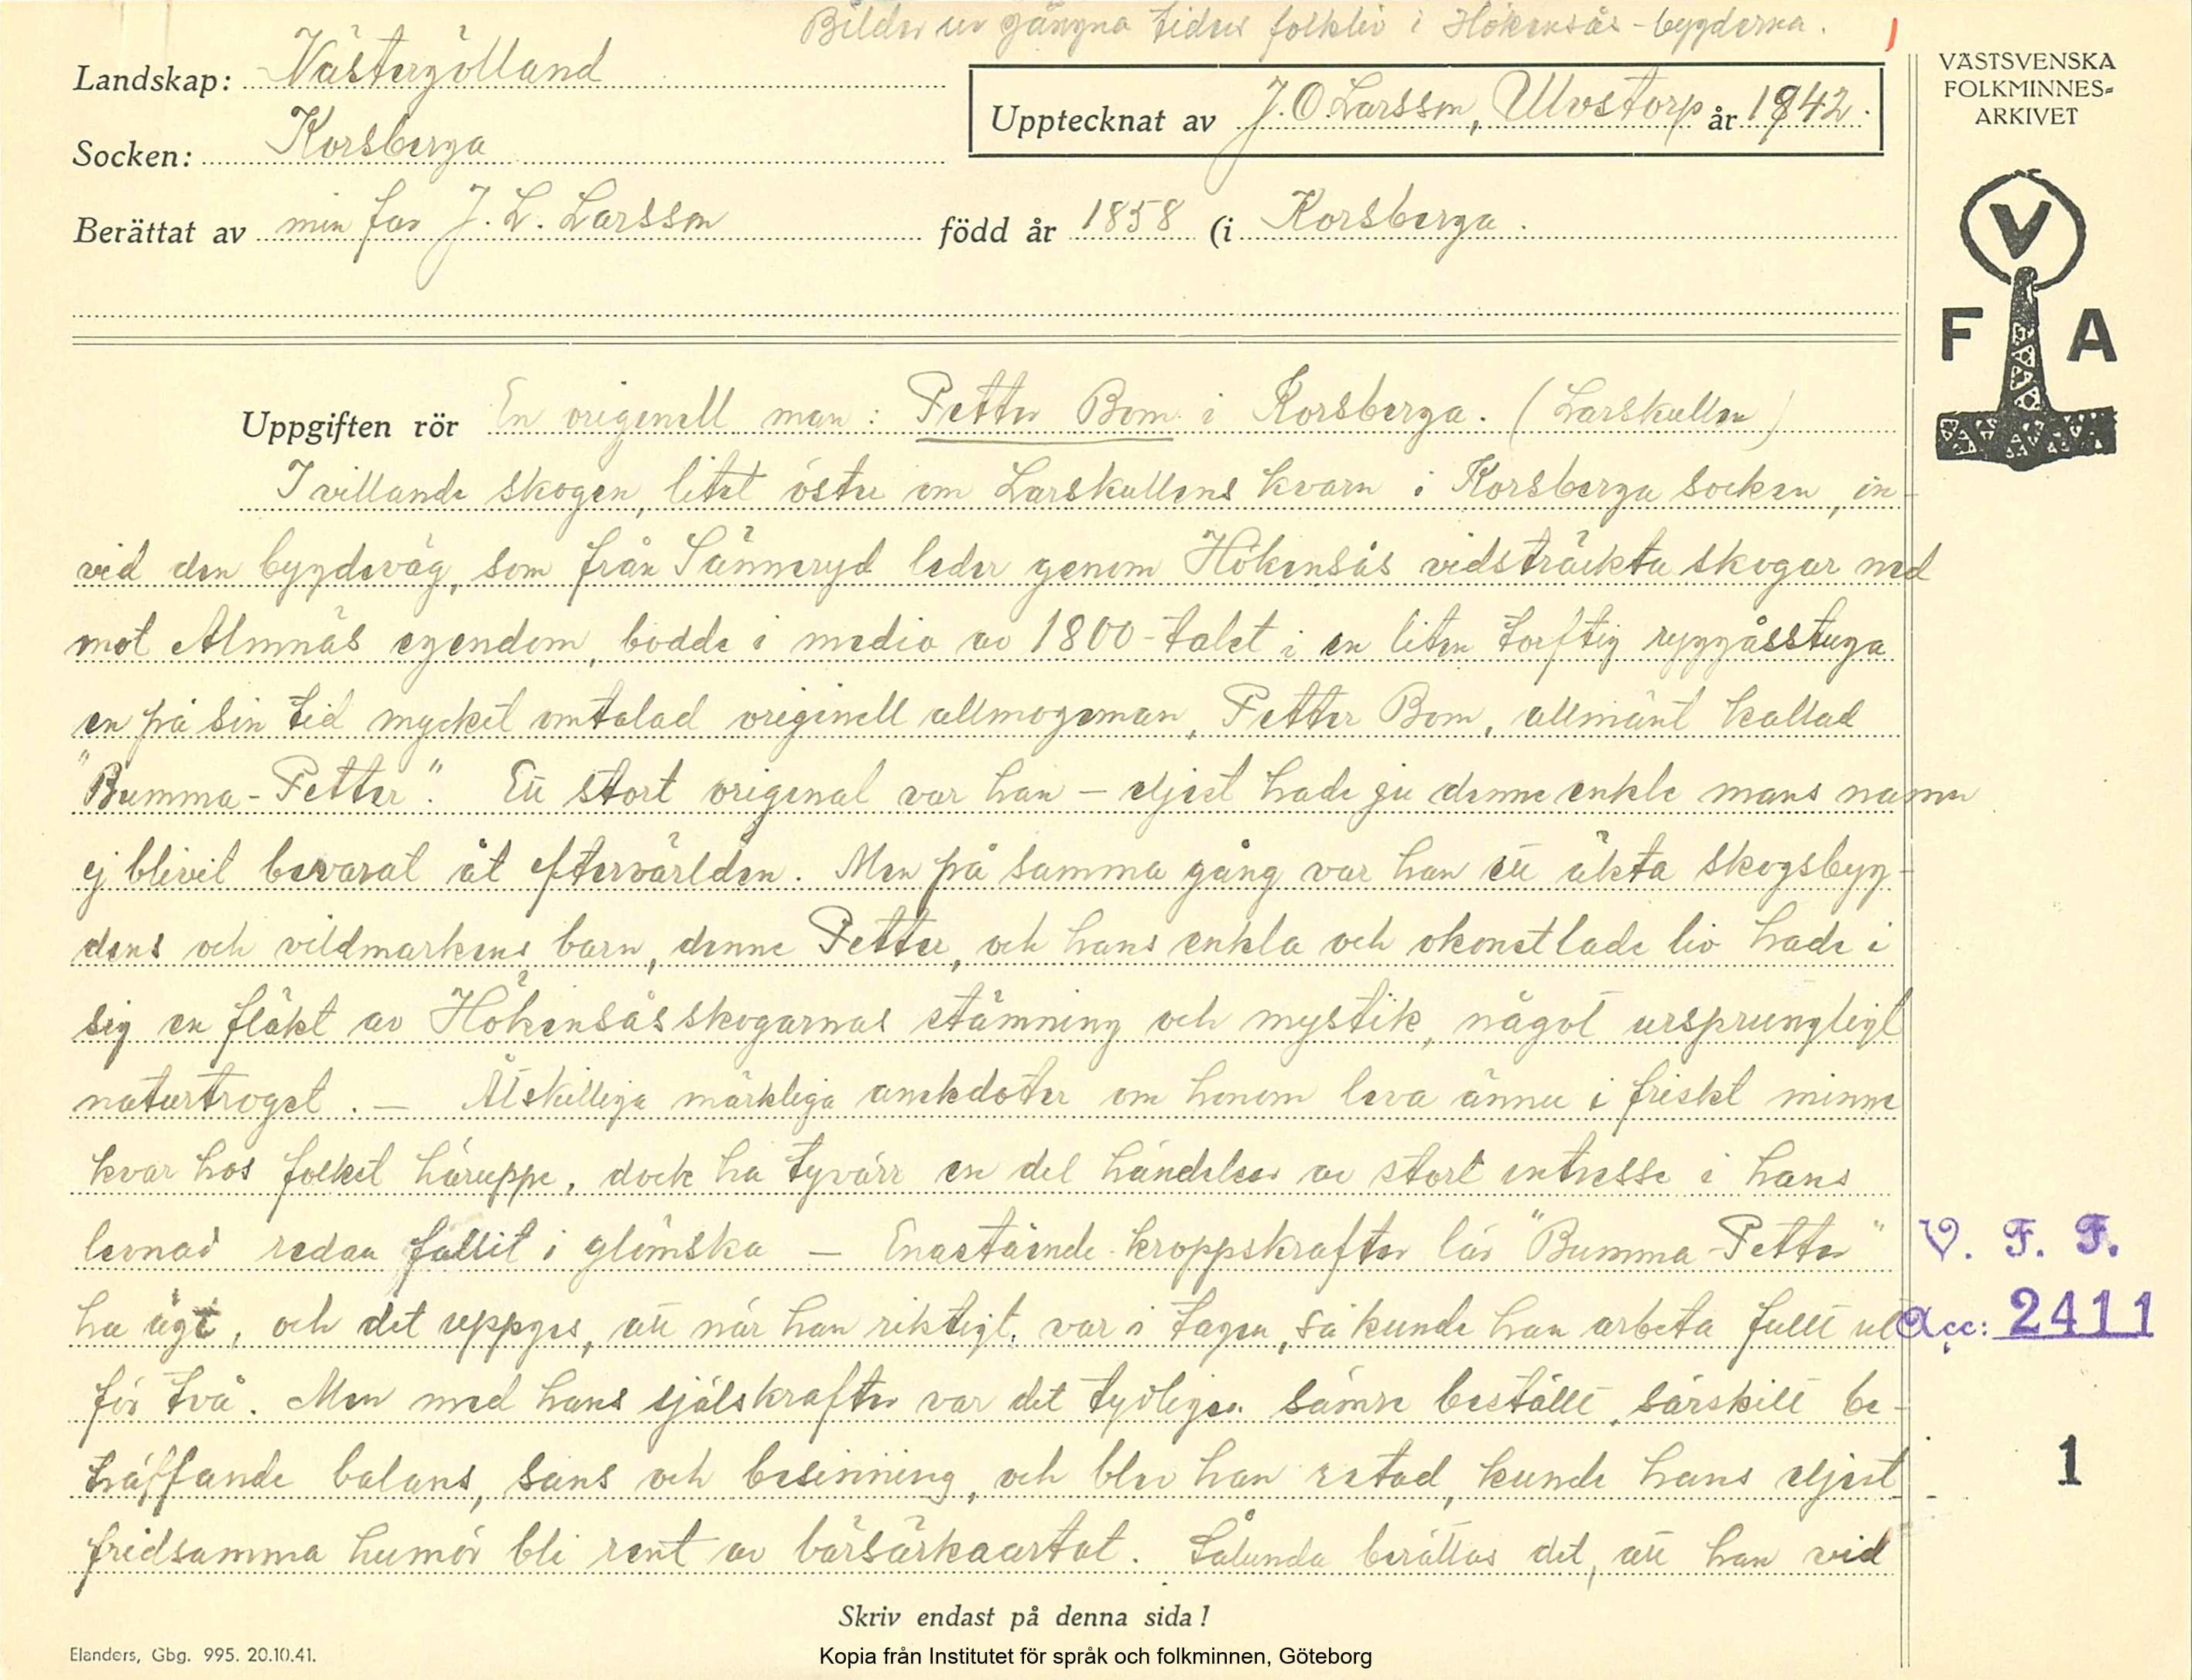 Bilder ur gångna tiders folkliv i Hökensås-bygderna.
Landskap: Västergötland
Upptecknat av J.O. Larsson, Ulvstorp år 1942.
Socken: Korsberga
Berättat av min far J. L. Larsson född år 1858 (i Korsberga.
VÄSTSVENSKA
FOLKMINNES=
ARKIVET
V
F A
Uppgiften rör En originell man: Petter Bom i Korsberga. (Larskullen)
I villande skogen, litet öster om Larskullens kvarn i Korsberga socken, in-
vid den bygdeväg, som från Sänneryd leder genom Hökensås vidsträckta skogar ned
mot Almnäs egendom, bodde i medio av 1800-talet i en liten torftig ryggåsstuga
en på sin tid mycket omtalad originell allmogeman, Petter Bom, allmänt kallad
"Bumma-Petter". Ett stort original var han – eljest hade ju denne enkle mans namn
ej blivit bevarat åt eftervärlden. Men på samma gång var han ett äkta skogsbyg-
dens och vildmarkens barn, denne Petter, och hans enkla och okonstlade liv hade i
sig en fläkt av Hökensåsskogarnas stämning och mystik, något ursprungligt
naturtroget. – Åtskilliga märkliga anekdoter om honom leva ännu i friskt minne
kvar hos folket häruppe, dock ha tyvärr en del händelser av stort intresse i hans
levnad redan fallit i glömska – Enastående kroppskrafter lär "Bumma-Petter"
ha ägt, och det uppges, att när han riktigt var i tagen, så kunde han arbeta fullt ut
för två. Men med hans själskrafter var det tydligen sämre beställt, särskilt be-
träffande balans, sans och besinning, och blev han retad, kunde hans eljest
fridsamma humör bli rent av bärsärkaartat. Sålunda berättas det, att han vid
V. F. F.
Acc: 2411
1
Skriv endast på denna sida!
Elanders, Gbg. 995. 20.10.41.
Kopia från Institutet för språk och folkminnen, Göteborg